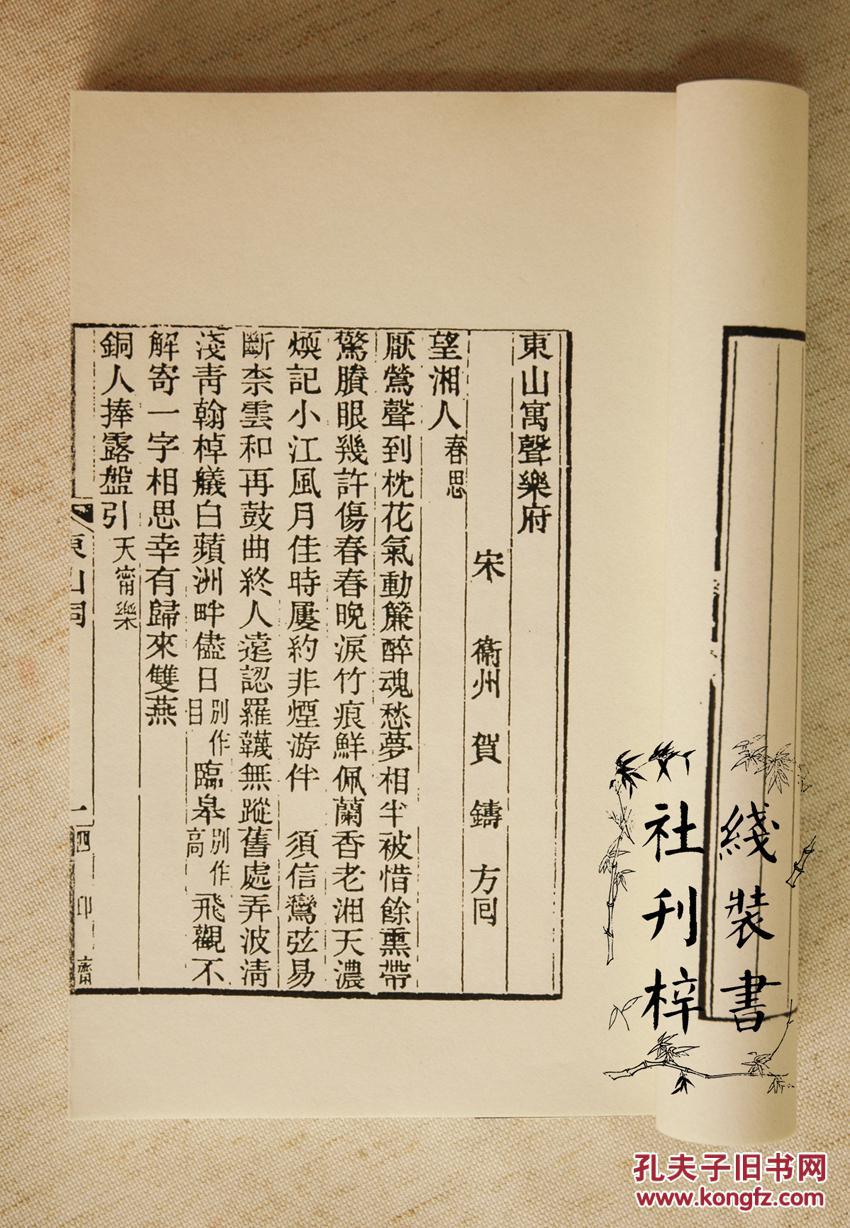 東山寓聲樂府
宋 衞州 賀 鑄 方回
望湘人春思
厭鶯聲到枕花氣動簾醉魂愁夢相半被惜餘熏帶
驚賸眼幾許傷春春晚淚竹痕鮮佩蘭香老湘天濃
煗記小江風月佳時屢約非煙游伴 須信鸞弦易
斷柰雲和再鼓曲終人遠認羅韈無蹤舊處弄波淸
淺靑翰棹艤白蘋洲畔儘日別作目臨皋別作高飛觀不
解寄一字相思幸有歸來雙燕
銅人捧露盤引天甯樂
東山詞
一 四印齋
綫裝書
社刊梓
孔夫子旧书网
www.kongfz.com